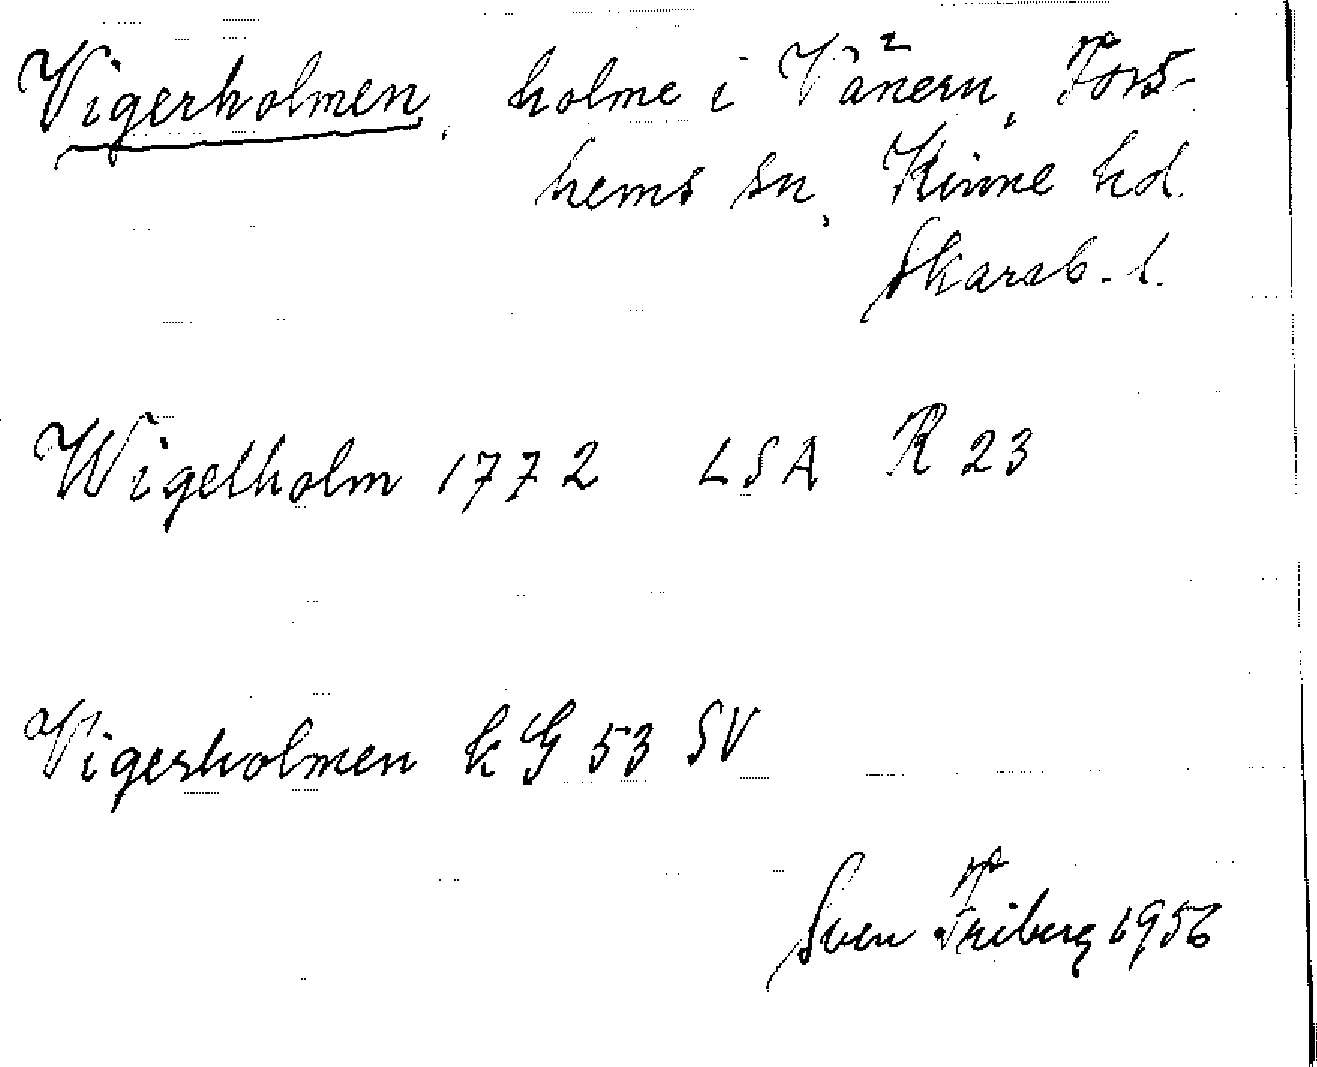 Vigerholmen, holme i Vänern, Fors-
hems sn, Kinne hd.
Skarab. l.
Wigelholm 1772 LSA R 23
Vigerholmen k G 53 SV
Sven Friberg 1956